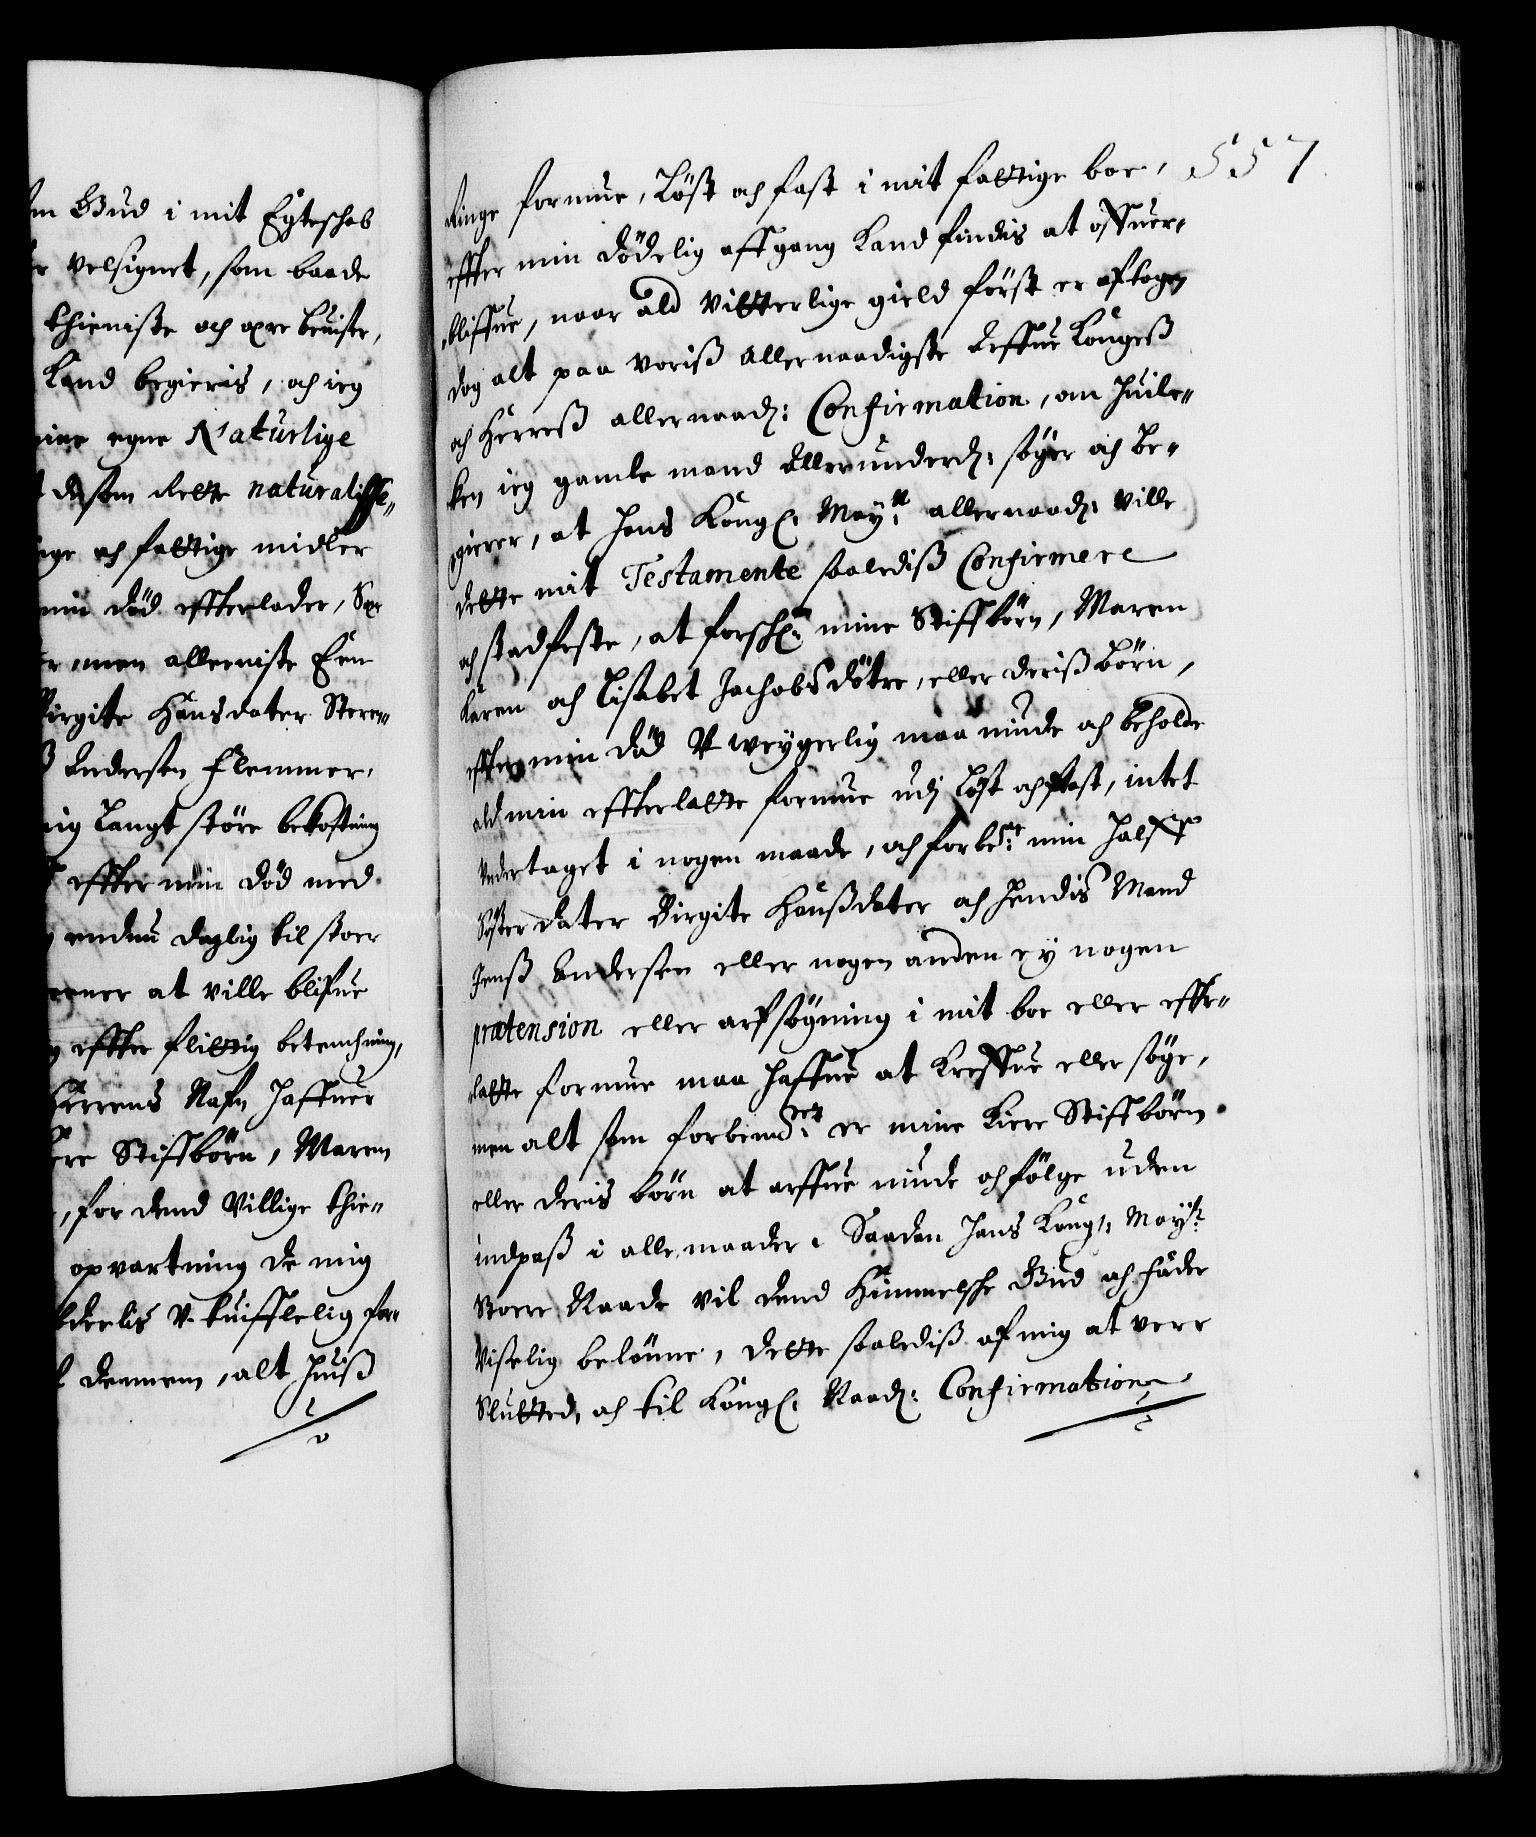 m Gud i mit Egteschab
r velsignet, som baade
thieniste och ære beuiste,
Kand begieris, och ieg
mine egne Naturlige
som rette naturalisse-
nge och fattige midler
min död effterlader, Saa
r, men alleeniste Een
Birgite Hansdater Steen-
ß Andersen Flemmer,
mig Langt större bekostning
effter min Död med
endnu daglig til stoer
eener at ville blifue
effter flittig betenchning,
Herrens Nafn haffuer
ere Stiffbörn, Maren
, for dend Villige thie-
opvartning de mig
derlis V-tuiffuelig for-
l dennem, alt huiß
557
Ringe formue, Löst och fast i mit fattige boe,
effter min dödelig affgang Kand findis at offuer-
bliffue, naar ald vitterlige gield först er aftagen
dog alt paa voriß allernaadigste Arffue Kongeß
och Herreß allernaad: Confirmation, om huil-
ken ieg gamle mand allerunderd: söger och be-
gierer, at Hans Kongl: May:tt allernaad: ville
dette mit Testamente saalediß Confirmere
och stadfeste, at forsch:ne mine Stiffbörn, Maren
Karen och Lisabet Jachobsdötre, eller deriß börn,
effter min död V-weygerlig maa niude och beholde
ald min effterlatte formue udj Löst och fast, intet
undertaget i nogen maade, och forbe:te min halff
Söster dater Birgite Hanßdater och hendis Mand
Jenß Andersen eller nogen anden ey nogen
prætension eller arfsögning i mit boe eller effter-
latte formue maa haffue at Kreffue eller söge,
men alt som forbemelt er mine Kiere Stiffbörn
eller deris börn at arffue niude och fölge uden
indpaß i alle maader. Saadan Hans Kongl: May:tt
Store Naade vil dend Himmelske Gud och fader
Visselig belönne, dette saalediß af mig at vere
Sluttet, och til Kongl: Naad: Confirmation